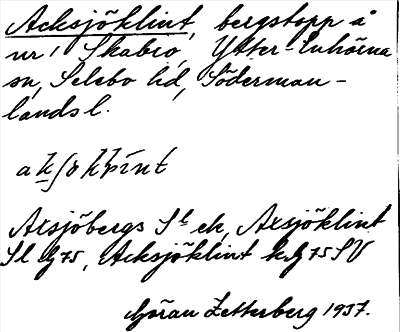 Acksjöklint, bergstopp å
nr 1 Skabro, Ytter-Enhörna
sn, Selebo hd, Söderman-
lands l.
Axsjöbergs Sk ek, Axsjöklint
Sl Eg 75, Acksjöklint k Eg 75 SV
Göran Zetterberg 1937.